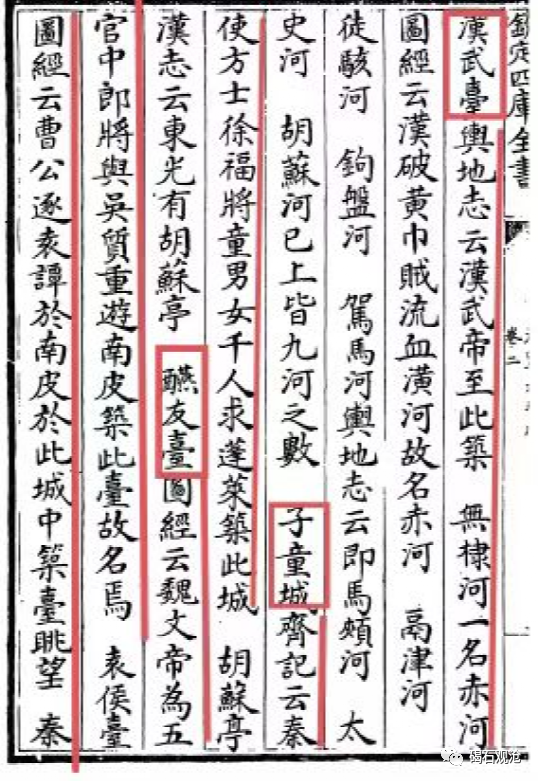 欽定四庫全書
卷二
漢武臺輿地志云漢武帝至此築 無棣河一名赤河
圖經云漢破黃巾賊流血潢河故名赤河 鬲津河
徒駭河 鉤盤河 駕馬河輿地志云即馬頰河 太
史河 胡蘇河已上皆九河之數 子童城齊記云秦
使方士徐福將童男女千人求蓬萊築此城 胡蘇亭
漢志云東光有胡蘇亭 醼友臺圖經云魏文帝為五
官中郎將與吳質重遊南皮築此臺故名焉 袁侯臺
圖經云曹公逐袁譚於南皮於此城中築臺眺望 秦
碣石观沧